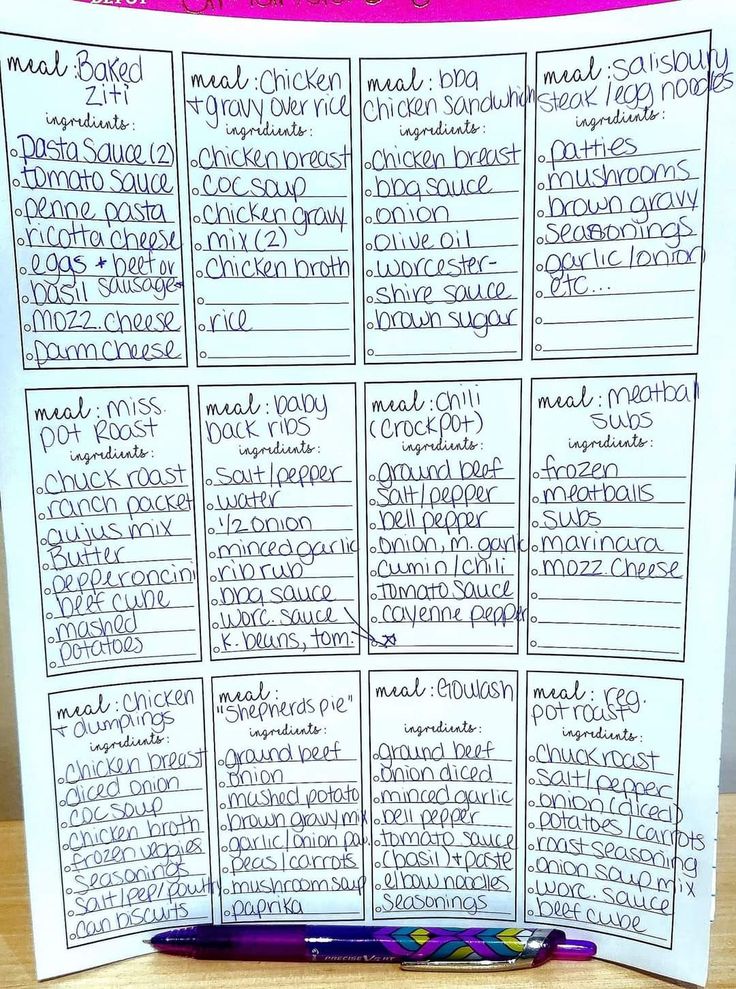 DEPOT
meal: Baked
Ziti
ingredients:
Pasta Sauce (2)
tomato sauce
penne pasta
ricotta cheese
eggs + beef or
basil sausage
mozz. cheese
parm cheese
meal: Chicken
+ gravy over rice
ingredients:
Chicken breast
COC soup
chicken gravy
mix (2)
Chicken broth
rice
meal: bbq
chicken sandwhich
ingredients:
chicken breast
bbq sauce
onion
olive oil
worcester-
shire sauce
brown sugar
meal: salisbury
steak / egg noodles
ingredients:
patties
mushrooms
brown gravy
seasonings
garlic / onion
etc...
meal: miss.
pot Roast
ingredients:
chuck roast
ranch packet
aujus mix
Butter
pepperoncini
beef cube
mashed
potatoes
meal: baby
back ribs
ingredients:
salt / pepper
water
1/2 onion
minced garlic
rib rub
bbq sauce
worc. sauce
k. beans, tom.
meal: chili
(crockpot)
ingredients:
ground beef
salt / pepper
bell pepper
onion, m. garlic
cumin / chili
tomato sauce
cayenne pepper
meal: meatball
subs
ingredients:
frozen
meatballs
subs
marinara
mozz. cheese
meal: Chicken
+ dumplings
ingredients:
chicken breast
diced onion
COC soup
chicken broth
frozen veggies
seasonings
salt / pep / poultry
can biscuits
meal:
"Shepherds pie"
ingredients:
ground beef
onion
mashed potato
brown gravy mix
garlic / onion pow.
peas / carrots
mushroom soup
paprika
meal: Goulash
ingredients:
ground beef
onion diced
minced garlic
bell pepper
tomato sauce
(basil) + paste
elbow noodles
seasonings
meal: reg.
pot roast
ingredients:
Chuck roast
salt / pepper
onion (diced)
potatoes / carrots
roast seasoning
onion soup mix
worc. sauce
beef cube
PRECISE V5 RT